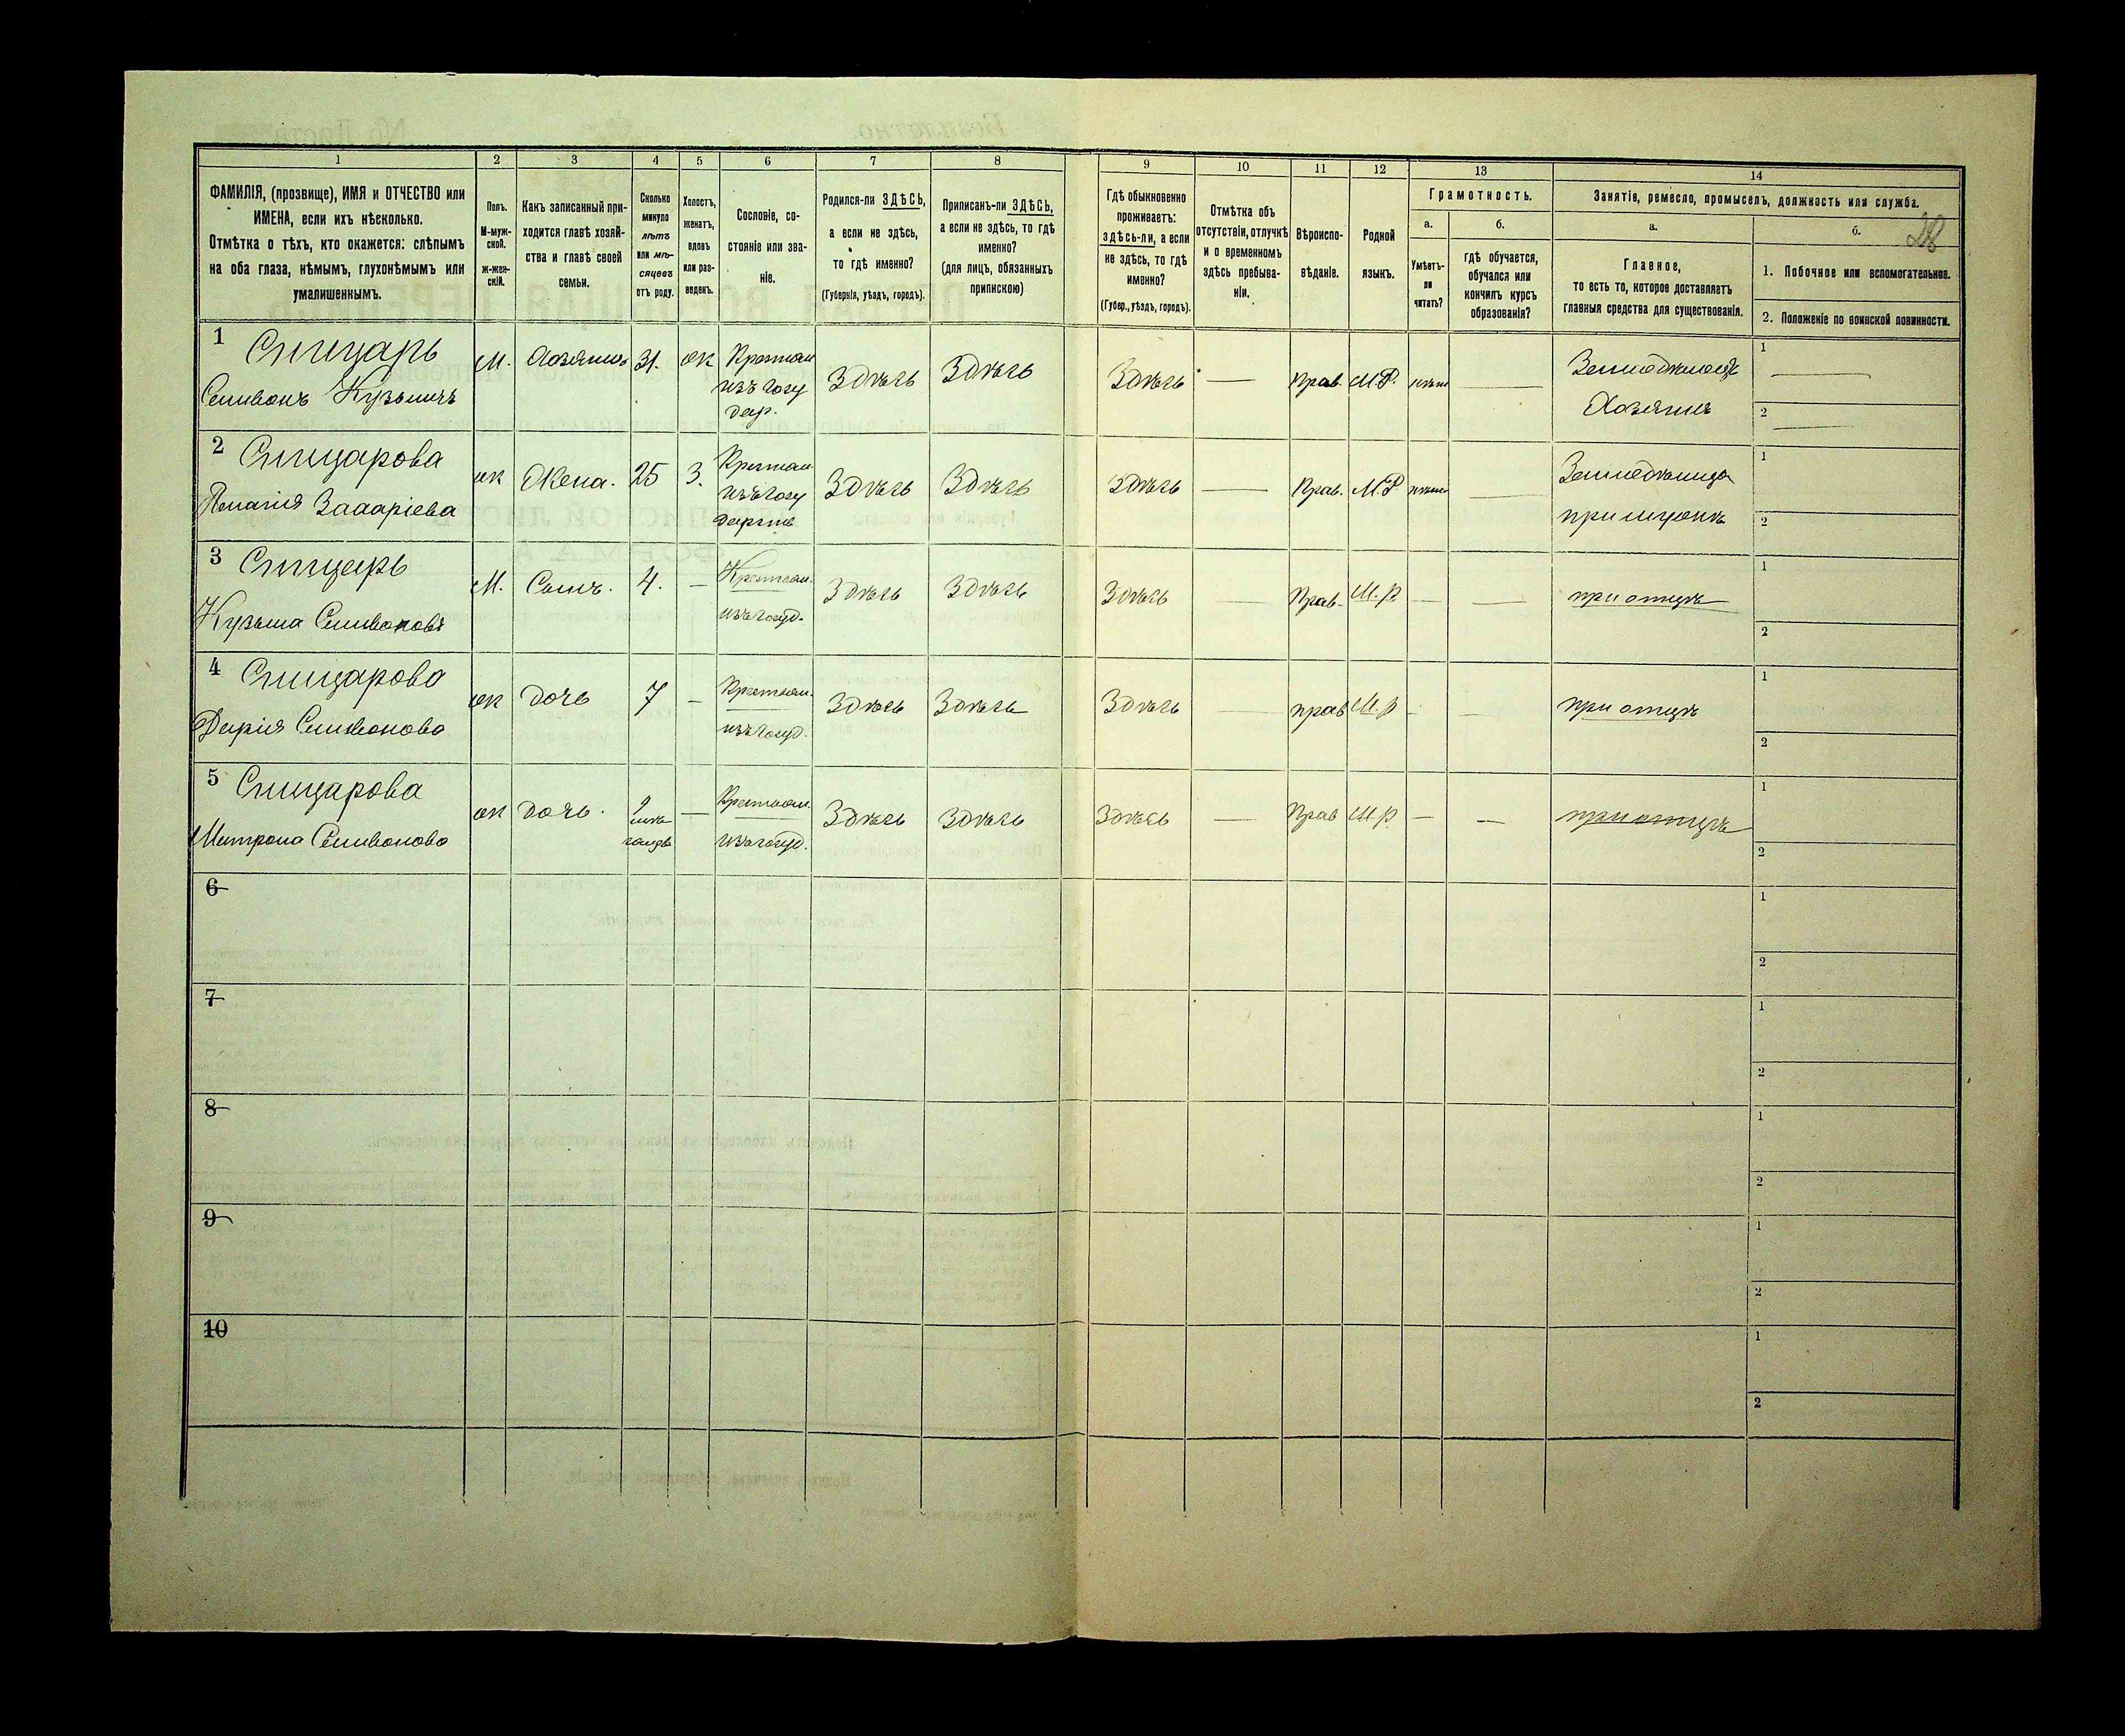 28
1 2 3 4 5 6 7 8 9 10 11 12 13 14
ФАМИЛІЯ, (прозвище), ИМЯ и ОТЧЕСТВО или
ИМЕНА, если ихъ нѣсколько.
Отмѣтка о тѣхъ, кто окажется: слѣпымъ
на оба глаза, нѣмымъ, глухонѣмымъ или
умалишеннымъ.
Полъ.
М-муж-
ской.
ж-жен-
скій.
Какъ записанный при-
ходится главѣ хозяй-
ства и главѣ своей
семьи.
Сколько
минуло
лѣтъ
или мѣ-
сяцевъ
отъ роду.
Холостъ,
женатъ,
вдовъ
или раз-
веденъ.
Сословіе, со-
стояніе или зва-
ніе.
Родился-ли ЗДѢСЬ,
а если не здѣсь,
то гдѣ именно?
(Губернія, уѣздъ, городъ).
Приписанъ-ли ЗДѢСЬ,
а если не здѣсь, то гдѣ
именно?
(для лицъ, обязанныхъ
припискою)
Гдѣ обыкновенно
проживаетъ:
ЗДѢСЬ-ли, а если
не здѣсь, то гдѣ
именно?
(Губер., уѣздъ, городъ).
Отмѣтка объ
отсутствіи, отлучкѣ
и о временномъ
здѣсь пребыва-
ніи.
Вѣроиспо-
вѣданіе.
Родной
языкъ.
Грамотность.
а.
Умѣетъ-
ли
читать?
б.
гдѣ обучается,
обучался или
кончилъ курсъ
образованія?
Занятіе, ремесло, промыселъ, должность или служба.
а.
Главное,
то есть то, которое доставляетъ
главныя средства для существованія.
б.
1. Побочное или вспомогательное.
2. Положеніе по воинской повинности.
1 Спицарь
Семивонъ Кузьмичъ
М. Хозяинъ 31. ж Крестьян
изъ госу
дар.
Здѣсь Здѣсь Здѣсь — Прав. М.Р. нѣт —
Земледѣлецъ
Хозяинъ
1 —
2 —
2 Спицарова
Пелагія Захаріева
ж Жена. 25 З. Крестьян
изъ госу
дарств
Здѣсь Здѣсь Здѣсь — Прав. М.Р. нѣт —
Земледѣлица
1
2
3 Спицарь
Кузьма Семивоновъ
М. Сынъ. 4. — Крестьян.
изъ госуд.
Здѣсь Здѣсь Здѣсь — Прав. М.р. — —
при отцѣ
1
2
4 Спицарова
Дарія Семивонова
ж дочь 7 — Крестьян.
изъ госуд.
Здѣсь Здѣсь Здѣсь — прав М.р — —
при отцѣ
1
2
5 Спицарова
Семивонова
ж дочь. — Крестьян.
изъ госуд.
Здѣсь Здѣсь Здѣсь — Прав М.р. — —
при отцѣ
1
2
6
1
2
7
1
2
8
1
2
9
1
2
10
1
2